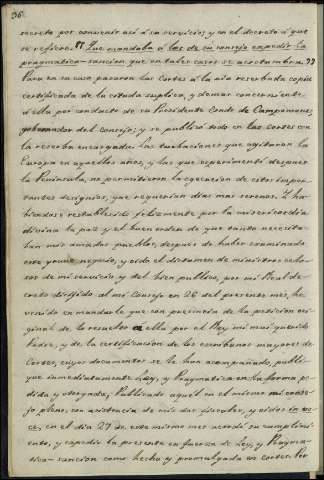 36.
secreta por convenir así á su servicio; y en el decreto á que
se refiere "Que mandaba á los de su consejo expedir la
pragmatica-sancion que en tales casos se acostumbra."
Para en su caso pasaron las Cortes á la via reservada copia
certificada de la citada suplica, y demas concerniente
á ella por conducto de su Presidente Conde de Campomanes,
gobernador del consejo; y se publicó todo en las Cortes con
la reserva encargada: las turbaciones que agitaron la
Europa en aquellos años, y las que esperimentó despues
la Península, no permitieron la egecucion de estos impor-
tantes designios, que requerian dias mas serenos. Y ha-
biéndose restablecido felizmente por la misericordia
divina la paz y el buen orden de que tanto necesita-
ban mis amados pueblos; despues de haber examinado
este grave negocio, y oido el dictamen de ministros celo-
sos de mi servicio y del bien publico, por mi Real de-
creto dirijido al mi Consejo en 26 del presente mes, he
venido en mandarle que con presencia de la peticion ori-
ginal, de lo resuelto a ella por el Rey mi muy querido
Padre, y de la certificacion de los escribanos mayores de
Cortes, cuyos documentos se le han acompañado, publi-
que inmediatamente Ley, y Pragmatica en la forma pe-
dida y otorgada; Publicado aquel en el mismo mi conse-
jo pleno, con asistencia de mis dos fiscales, y oidos in vo-
ce, en el dia 27 de este mismo mes acordó su cumplimi-
ento, y expedir la presente en fuerza de Ley, y Pragma-
tica-sancion como hecha y promulgada en Cortes. Por